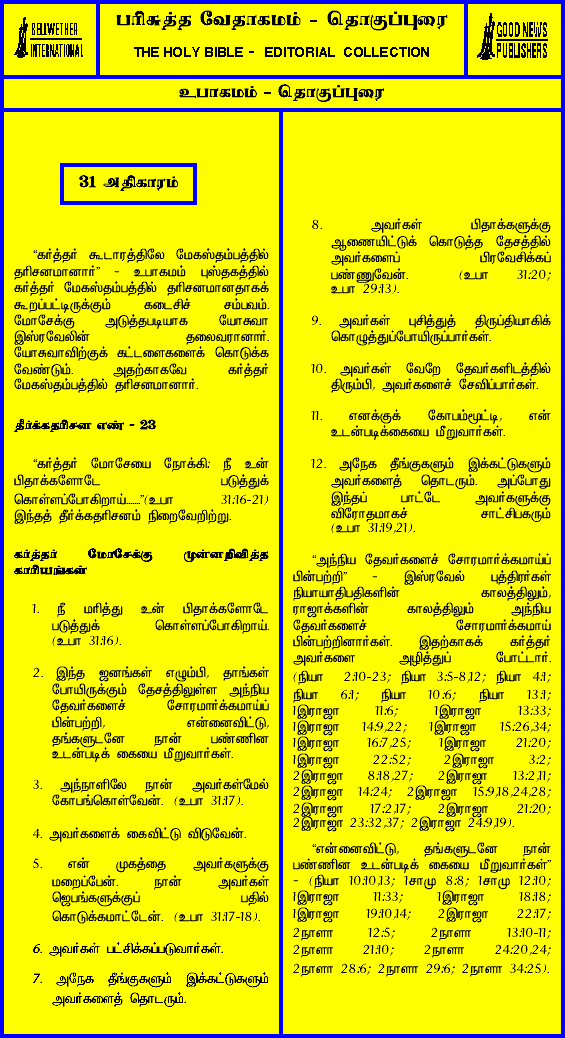 BELLWETHER
INTERNATIONAL
பரிசுத்த வேதாகமம் - தொகுப்புரை
THE HOLY BIBLE - EDITORIAL COLLECTION
GOOD NEWS
PUBLISHERS
உபாகமம் - தொகுப்புரை
31 அதிகாரம்
“கர்த்தர் கூடாரத்திலே மேகஸ்தம்பத்தில்
தரிசனமானார்” - உபாகமம் புஸ்தகத்தில்
கர்த்தர் மேகஸ்தம்பத்தில் தரிசனமானதாகக்
கூறப்பட்டிருக்கும் கடைசிச் சம்பவம்.
மோசேக்கு அடுத்தபடியாக யோசுவா
இஸ்ரவேலின் தலைவரானார்.
யோசுவாவிற்குக் கட்டளைகளைக் கொடுக்க
வேண்டும். அதற்காகவே கர்த்தர்
மேகஸ்தம்பத்தில் தரிசனமானார்.
தீர்க்கதரிசன எண் - 23
“கர்த்தர் மோசேயை நோக்கி: நீ உன்
பிதாக்களோடே படுத்துக்
கொள்ளப்போகிறாய்......”(உபா 31:16-21)
இந்தத் தீர்க்கதரிசனம் நிறைவேறிற்று.
கர்த்தர் மோசேக்கு முன்னறிவித்த
காரியங்கள்
1. நீ மரித்து உன் பிதாக்களோடே
படுத்துக் கொள்ளப்போகிறாய்.
(உபா 31:16).
2. இந்த ஜனங்கள் எழும்பி, தாங்கள்
போயிருக்கும் தேசத்திலுள்ள அந்நிய
தேவர்களைச் சோரமார்க்கமாய்ப்
பின்பற்றி, என்னைவிட்டு,
தங்களுடனே நான் பண்ணின
உடன்படிக் கையை மீறுவார்கள்.
3. அந்நாளிலே நான் அவர்கள்மேல்
கோபங்கொள்வேன். (உபா 31:17).
4. அவர்களைக் கைவிட்டு விடுவேன்.
5. என் முகத்தை அவர்களுக்கு
மறைப்பேன். நான் அவர்கள்
ஜெபங்களுக்குப் பதில்
கொடுக்கமாட்டேன். (உபா 31:17-18).
6. அவர்கள் பட்சிக்கப்படுவார்கள்.
7. அநேக தீங்குகளும் இக்கட்டுகளும்
அவர்களைத் தொடரும்.
8. அவர்கள் பிதாக்களுக்கு
ஆணையிட்டுக் கொடுத்த தேசத்தில்
அவர்களைப் பிரவேசிக்கப்
பண்ணுவேன். (உபா 31:20;
உபா 29:13).
9. அவர்கள் புசித்துத் திருப்தியாகிக்
கொழுத்துப்போயிருப்பார்கள்.
10. அவர்கள் வேறே தேவர்களிடத்தில்
திரும்பி, அவர்களைச் சேவிப்பார்கள்.
11. எனக்குக் கோபம்மூட்டி, என்
உடன்படிக்கையை மீறுவார்கள்.
12. அநேக தீங்குகளும் இக்கட்டுகளும்
அவர்களைத் தொடரும். அப்போது
இந்தப் பாட்டே அவர்களுக்கு
விரோதமாகச் சாட்சிபகரும்
(உபா 31:19,21).
“அந்நிய தேவர்களைச் சோரமார்க்கமாய்ப்
பின்பற்றி” - இஸ்ரவேல் புத்திரர்கள்
நியாயாதிபதிகளின் காலத்திலும்,
ராஜாக்களின் காலத்திலும் அந்நிய
தேவர்களைச் சோரமார்க்கமாய்
பின்பற்றினார்கள். இதற்காகக் கர்த்தர்
அவர்களை அழித்துப் போட்டார்.
(நியா 2:10-23; நியா 3:5-8,12; நியா 4:1;
நியா 6:1; நியா 10:6; நியா 13:1;
1இராஜா 11:6; 1இராஜா 13:33;
1இராஜா 14:9,22; 1இராஜா 15:26,34;
1இராஜா 16:7,25; 1இராஜா 21:20;
1இராஜா 22:52; 2இராஜா 3:2;
2இராஜா 8:18,27; 2இராஜா 13:2,11;
2இராஜா 14:24; 2இராஜா 15:9,18,24,28;
2இராஜா 17:2,17; 2இராஜா 21:20;
2இராஜா 23:32,37; 2இராஜா 24:9,19).
“என்னைவிட்டு, தங்களுடனே நான்
பண்ணின உடன்படிக் கையை மீறுவார்கள்”
- (நியா 10:10,13; 1சாமு 8:8; 1சாமு 12:10;
1இராஜா 11:33; 1இராஜா 18:18;
1இராஜா 19:10,14; 2இராஜா 22:17;
2நாளா 12:5; 2நாளா 13:10-11;
2நாளா 21:10; 2நாளா 24:20,24;
2நாளா 28:6; 2நாளா 29:6; 2நாளா 34:25).